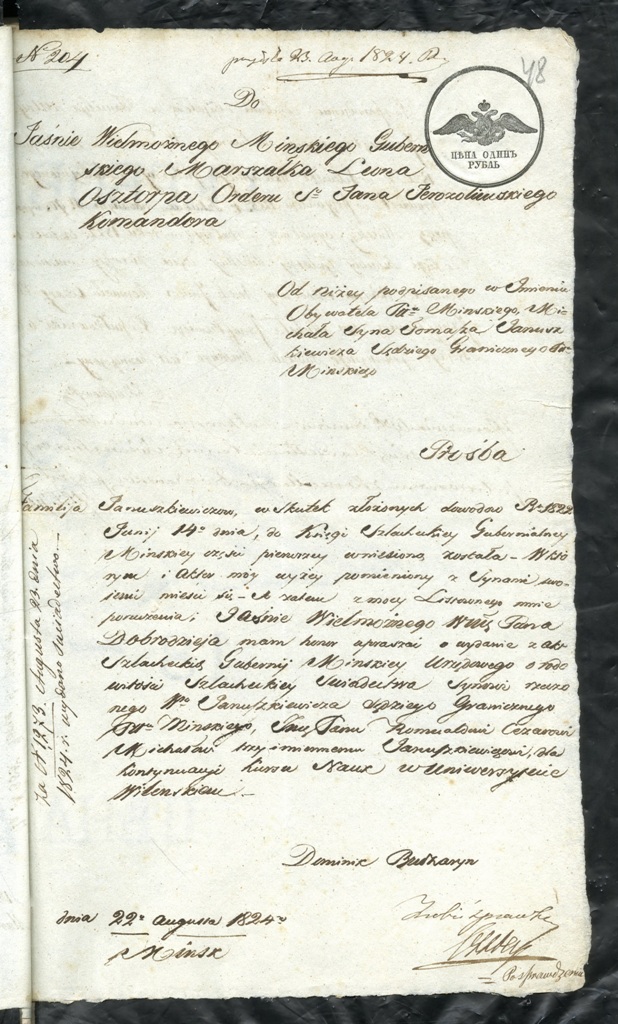 № 204
23. Aug. 1824.
48
Do
Jaśnie Wielmożnego Minskiego Guber
skiego Marszałka Leona
Osztorpa Orderu St Jana Jerozolimskiego
Komandora
ЦѢНА ОДИНЪ
РУБЛЬ
Od niżey podpisanego w Imieniu
Obywatela Ptu Minskiego, Mi-
chała Syna Tomasza Janusz
kiewicza Sędziego Granicznego Ptu
Minskiego
Prośba
Familija Januszkiewiczow, w skutek złożonych dowodow Ru 1822
Junij 14o dnia, do Księgi Szlacheckiey Gubernialney
Minskiey części pierwszey wniesiona, została - w któ
rym i Aktor móy wyżey pomieniony z Synami swo
iemi mieści się - A zatem z mocy Listownego mnie
poruczenia, Jaśnie Wielmożnego WMŚ Pana
Dobrodzieja mam honor upraszać o wydanie z akt
Szlacheckich Gubernij Minskiey Urzędowego o rodo
witości Szlacheckiey Świadectwa Synowi rzeczo
nego Wo Januszkiewicza Sędziego Granicznego
Ptu Minskiego, Jmć Panu Romualdowi Cezarowi
Michałowi trzyimiennemu Januszkiewiczowi, dla
kontynuacyi kursu Nauk w Uniwersytecie
Wilenskim
za № 1273. Augusta 23. dnia
1824. r. wydano swiadectwo.
Dominik Bułharyn
dnia 22o augusta 1824o
Minsk
Zrobić sprawkę
Po sprawdzeniu